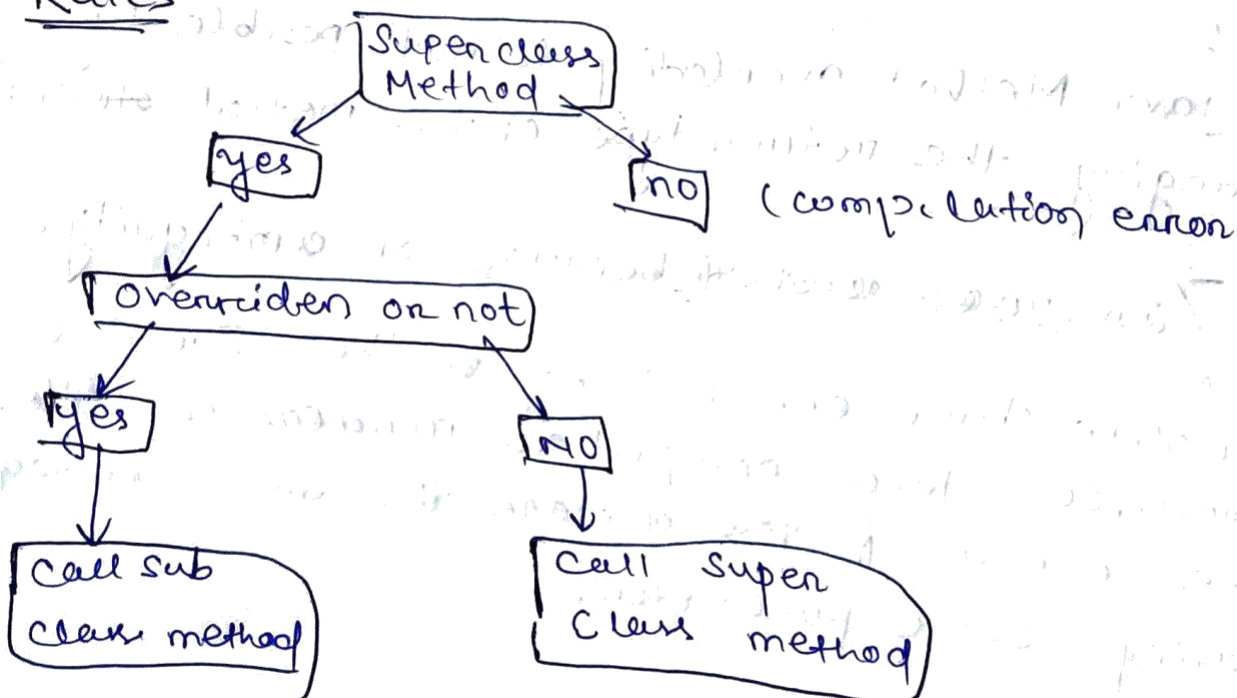 Rules
Super class
Method
yes
no (compilation error
overriden or not
yes
NO
Call sub
class method
Call Super
Class method